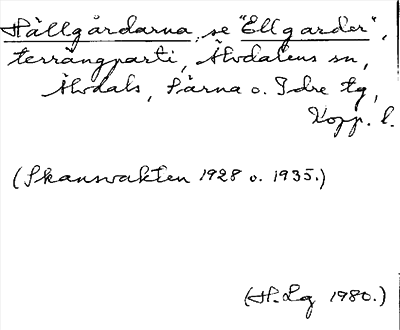 Hållgårdarna, se "Ellgarder",
terrängparti, Älvdalens sn,
Älvdals, Särna o. Idre tg,
Kopp. l.
(Skansvakten 1928 o. 1935.)
(H.Lg 1980.)